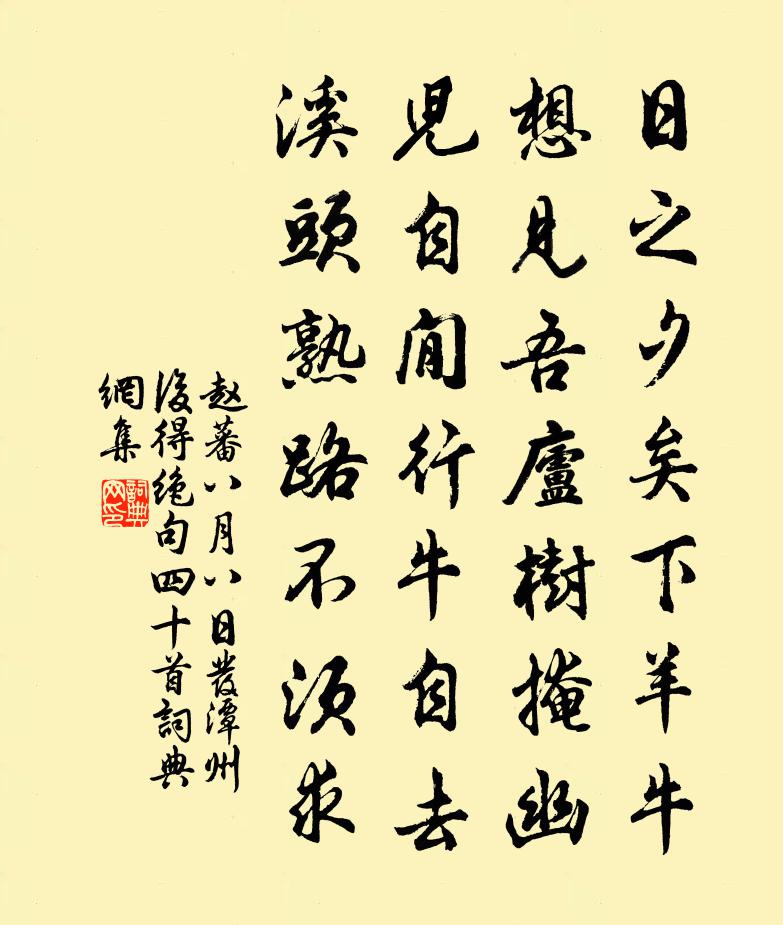 日之夕矣下羊牛
想見吾廬樹掩幽
児自閒行牛自去
溪頭熟路不須求
赵蕃八月八日發潭州
後得絶句四十首詞典
網集
詞典網印